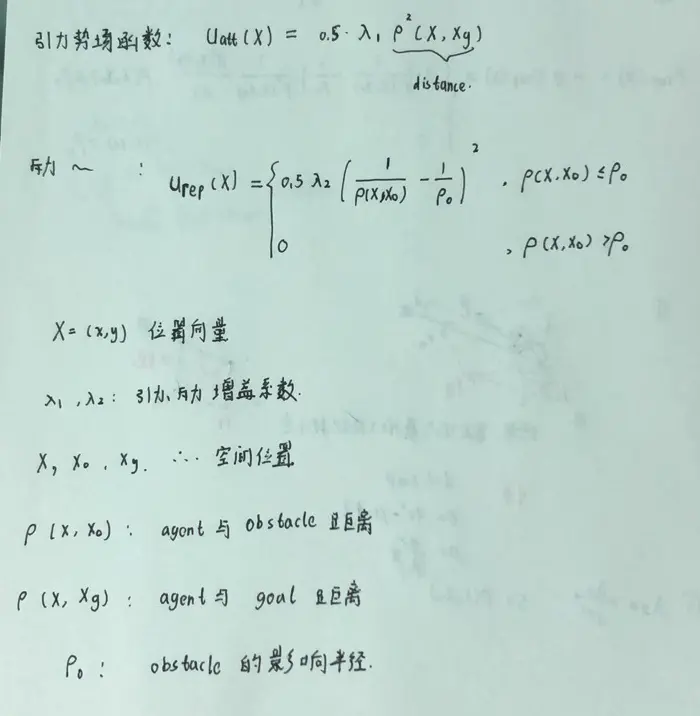 引力势场函数: Uatt(X) = 0.5·λ₁ ρ²(X, Xg)
distance.
斥力 ~ : Urep(X) = { 0.5 λ₂ ( 1/ρ(X,X₀) - 1/ρ₀ )² , ρ(X,X₀) ≤ ρ₀
0 , ρ(X,X₀) > ρ₀
X = (x,y) 位置向量
λ₁, λ₂: 引力、斥力 增益系数.
X, X₀, Xg. ∴ 空间位置
ρ(X, X₀): agent 与 obstacle 距离
ρ(X, Xg): agent 与 goal 距离
ρ₀: obstacle 的影响半径.